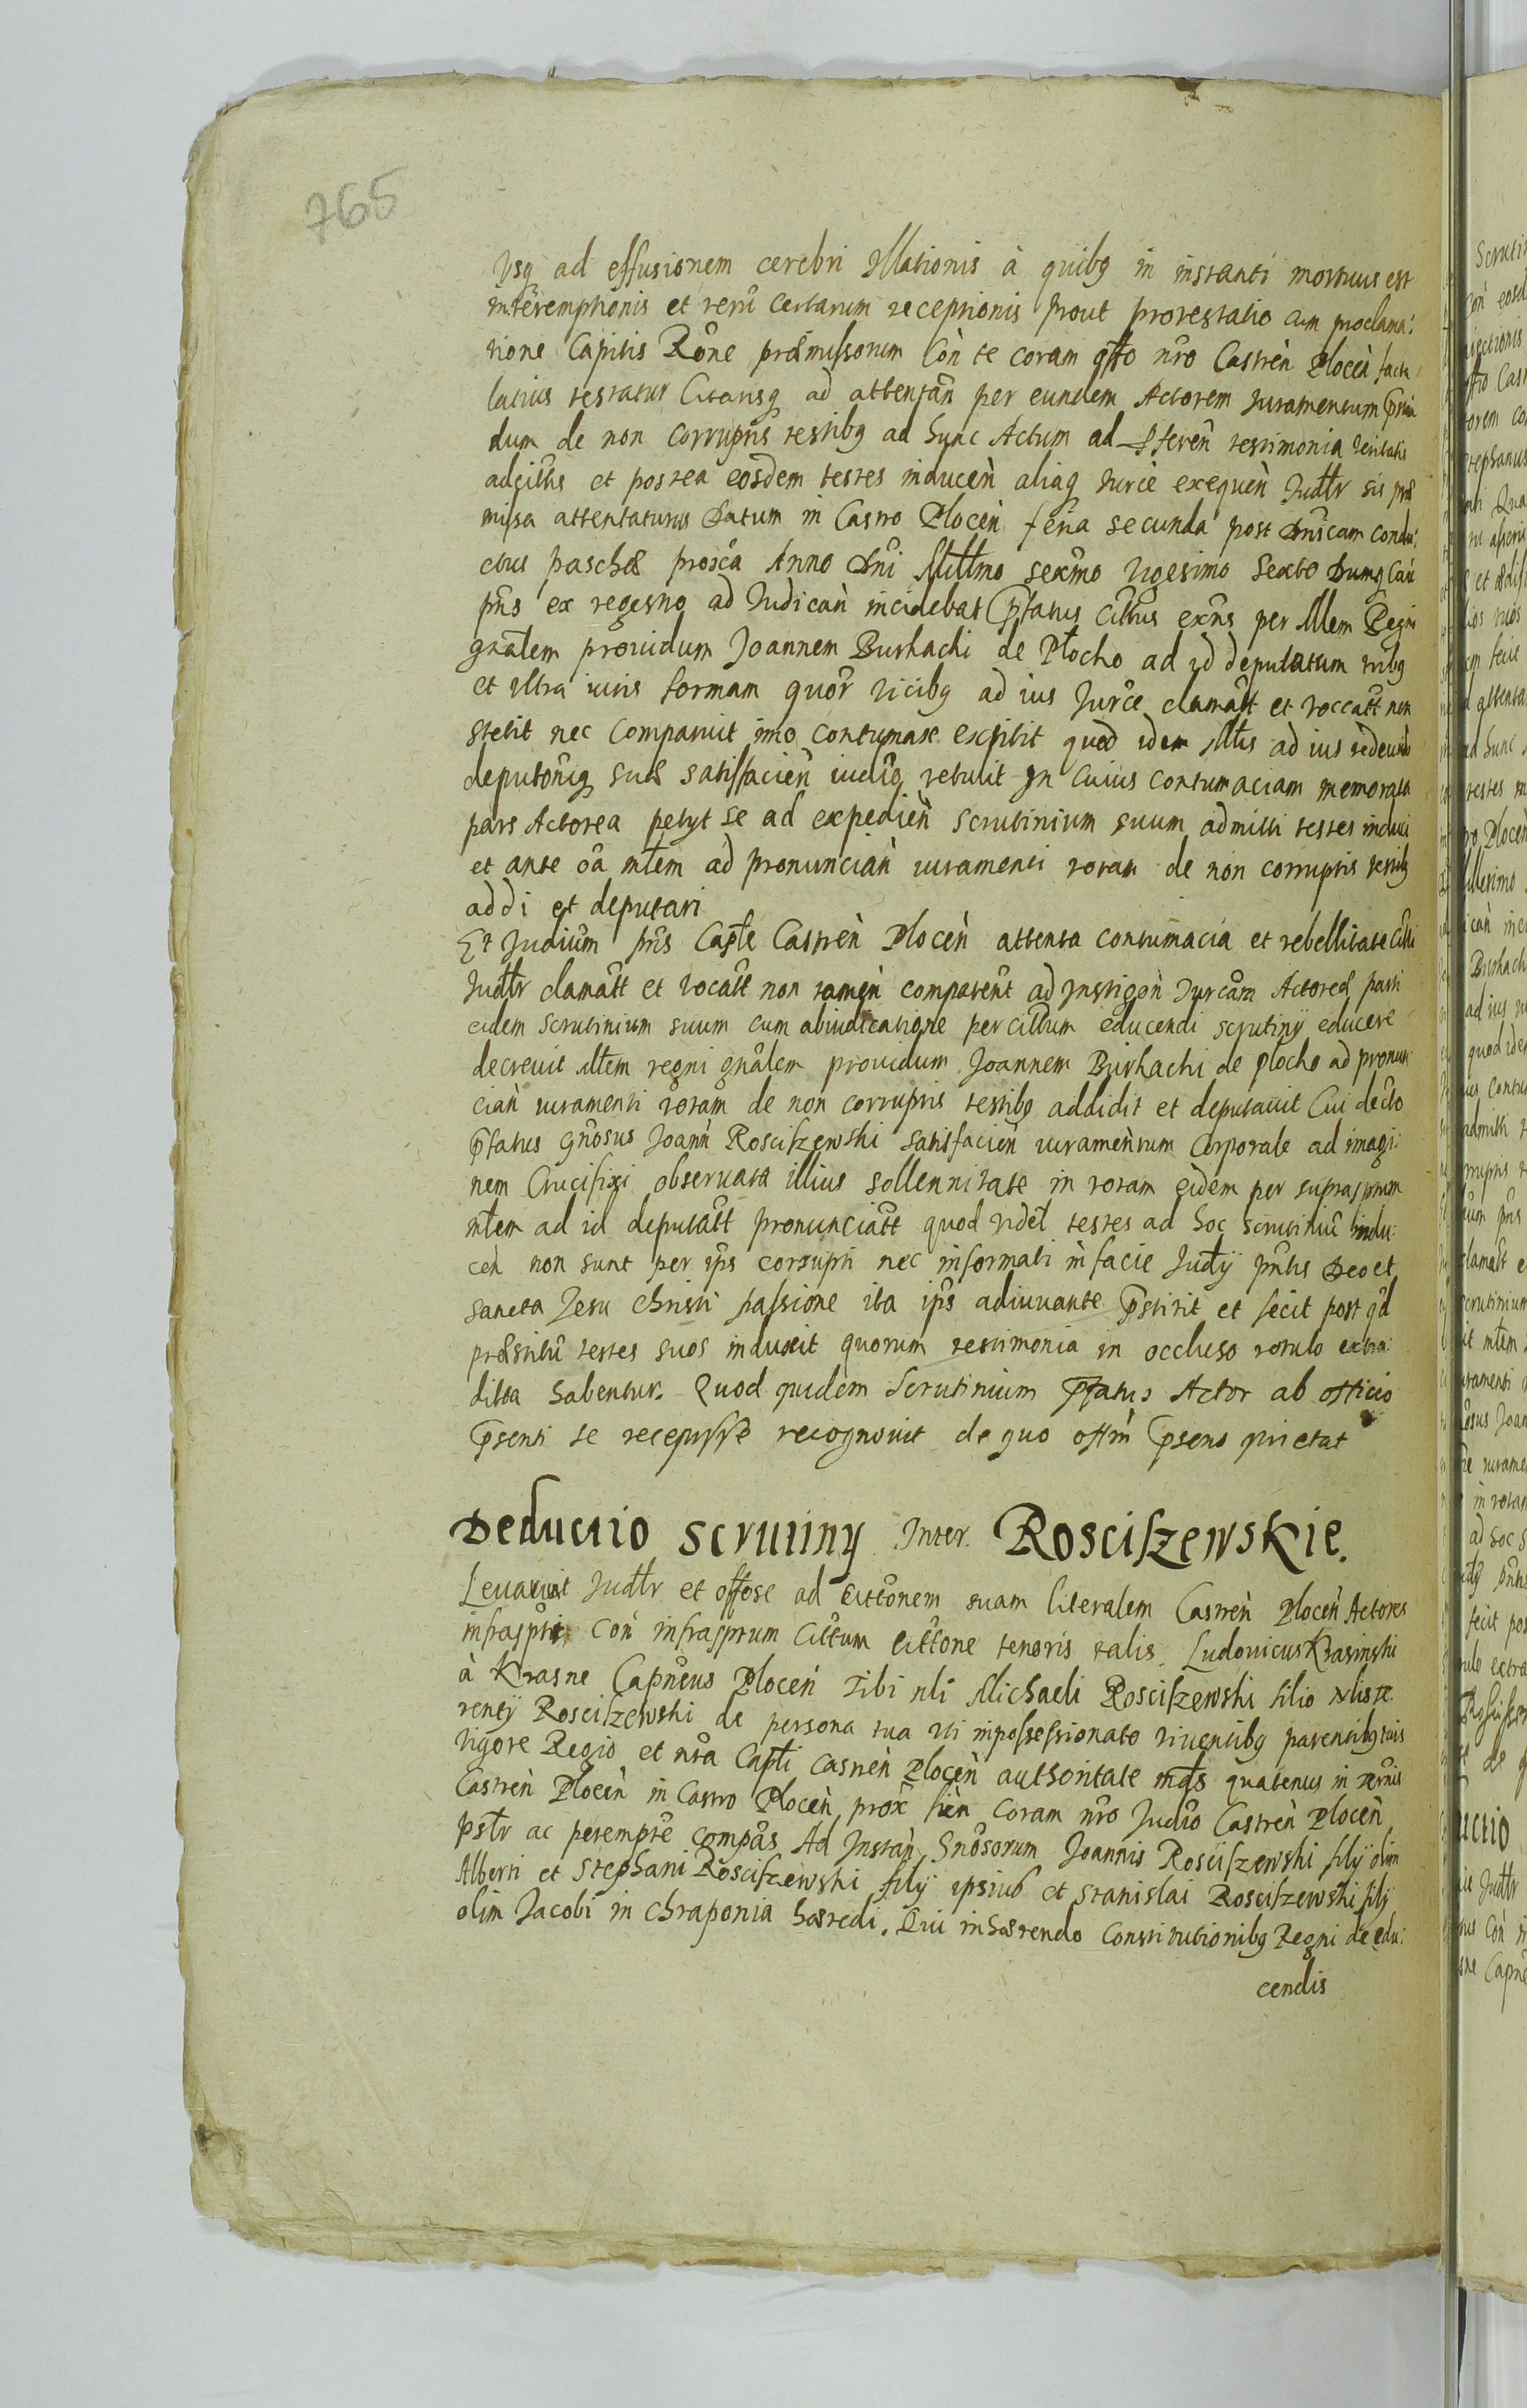 765
Vsq ad effusionem cerebri Illationis à quibq in instanti mortuus est
interemptionis et rerũ certarum receptionis prout protestatio cum proclama:
tione Capitis Rõne præmissorum Còn te coram offo nrõ Castreǹ Ploceǹ facta
latius testatur Citansq ad attentañ per eundem Actorem Iuramentum
dum de non corruptis testibq ad hunc Actum ad testimonia veritatis
adcitis et postea eosdem testes induceǹ aliaq Iurie exequeǹ Iudtr sis præ
missa attentaturus Datum in Castro Ploceǹ feria secunda post Dnicam condu:
ctus paschæ proxa Anno Dni Milltmo sexmo Vigesimo Sexto Dumq Cau
pns ex regestro ad Iudicañ incidebat Pfatus Cittus exns per Mlem Regni
gnãlem prouidum Joannem Burkachi de Plocko ad id deputatum tribq
et vltra iuris formam quor vicibq ad ius Iurce clamatt et voccatt non
stetit nec Comparuit imo contumax exstitit quod idem Mtis ad ius redeundo
deputoniq suæ satisfacieñ iudio retulit In Cuius contumaciam memorata
pars Actorea petyt se ad expedieǹ scrutinium suum admitti testes induci
et ante oã mtem ad pronunciañ iuramenti rotam de non corruptis testibq
addi et deputari
Et Judium pns Capte Castreǹ Ploceǹ attenta contumacia et rebellitate Citti
Iudtr clamatt et vocatt non tameǹ comparent ad Instigoǹ Iurcam Actoreæ parti
eidem scrutinium suum cum abiudicatione per cittum educendi scrutiny educere
decreuit Mtem regni gnãlem prouidum Joannem Burkachi de Plocko ad pronun
ciañ iuramenti rotam de non corruptis testibq addidit et deputauit Cui decto
Pfatus Gnosus Joann Roscisʒewski satisfacieǹ iuramentum Corporale ad imagi:
nem Crucifixi obseruata illius sollennitate in rotam eidem per suprasptum
mtem ad id deputatt pronunciatt quod videl testes ad hoc scrutiniũ indu:
ceǹ non sunt per ips corrupti nec informati in facie Judty pntis Deo et
sancta Jesu Christi passione ita ips adiuuante Pstitit et fecit post qd
præstitũ testes suos induxit quorum testimonia in occluso rotulo extra:
ditta habentur. Quod quidem Scrutinium Pfatus Actor ab officio
Psenti se recepisse recognouit de quo offm Psens quietat
Deductio scrutiny Inter Roscisʒewskie.
Leuauit Iudtr et offose ad Cittonem suam literalem Castreǹ Ploceǹ Actores
infraspti Còn infrasptum Cittum Cittone tenoris talis. Ludouicus Krasinski
à Krasne Capneus Ploceǹ Tibi nli Michaeli Roscisʒewski filio nlis Te
renty Roscisʒewski de persona tua vti impossessionato viuentibq parentibq tuis
Vigore Regio et nrã Capti Castreǹ Ploceǹ authoritate mds quatenus in termis
Castreǹ Ploceǹ in Castro Ploceǹ prox fieǹ coram nrõ Judio Castreǹ Ploceǹ
pstr ac perempte compas Ad Instañ Gnosorum Joannis Roscisʒewski fily olim
Alberti et Stephani Roscisʒewski fily ipsius et Stanislai Roscisʒewski fily
olim Jacobi in Chraponia hæredi. Qui inhærendo Constitutionibq Regni de edu:
cendis